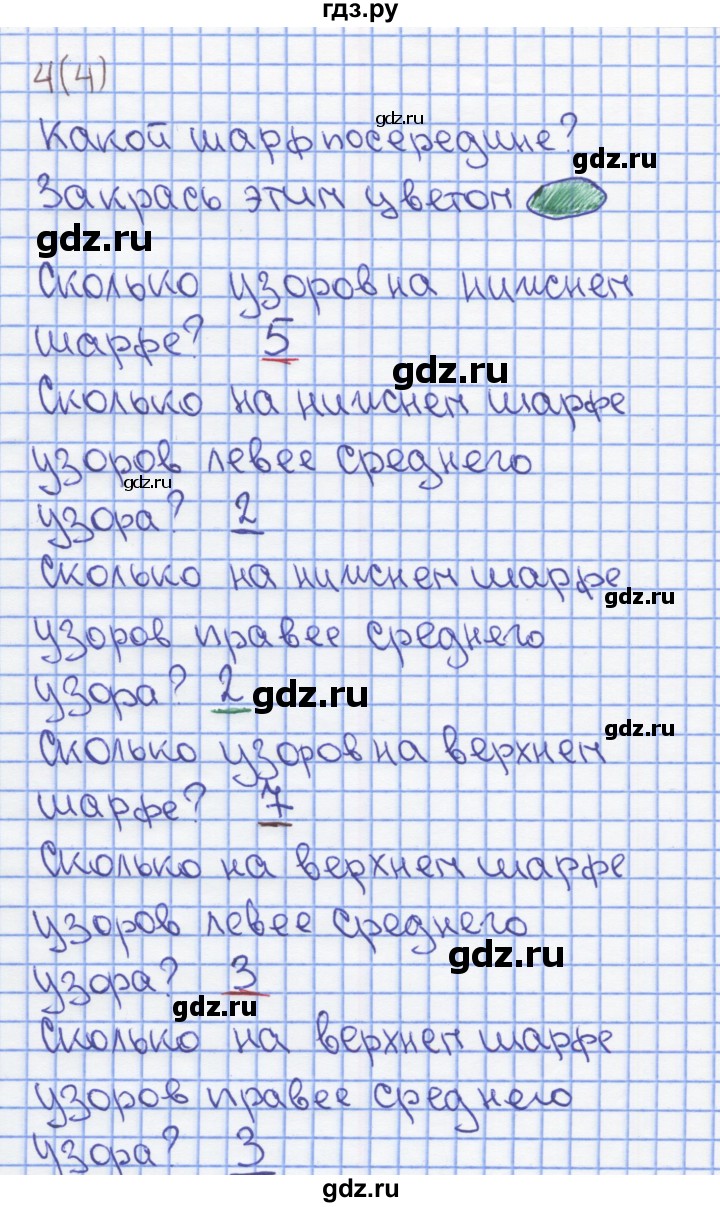 гдз.ру
4(4)
gdz.ru
Какой шарф посередине?
gdz.ru
Закрась этим цветом
gdz.ru
Сколько узоров на нижнем
шарфе? 5
gdz.ru
Сколько на нижнем шарфе
узоров левее среднего
gdz.ru
узора? 2
Сколько на нижнем шарфе
gdz.ru
узоров правее среднего
узора? 2
gdz.ru
gdz.ru
Сколько узоров на верхнем
шарфе? 7
Сколько на верхнем шарфе
узоров левее среднего
gdz.ru
узора? 3
gdz.ru
Сколько на верхнем шарфе
узоров правее среднего
узора? 3
gdz.ru